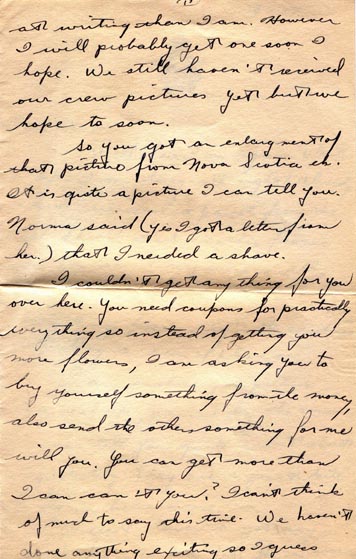 at writing than I am. However
I will probably get one soon I
hope. We still haven't received
our crew pictures yet but we
hope to soon.
So you got an enlargment of
that picture from Nova Scotia eh.
It is quite a picture I can tell you.
Norma said (yes I got a letter from
her.) that I needed a shave.
I couldn't get any thing for you
over here. You need coupons for practically
everything so instead of getting you
more flowers, I am asking you to
buy yourself something from the money,
also send the others something for me
will you. You can get more than
I can can't you? I can't think
of much to say this time. We haven't
done anything exciting so I guess